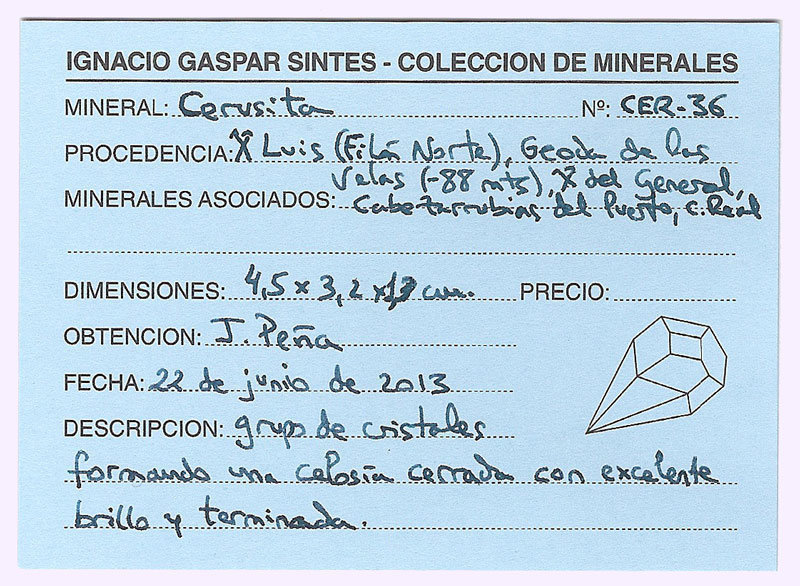 IGNACIO GASPAR SINTES - COLECCION DE MINERALES
MINERAL: Cerusita Nº: CER-36
PROCEDENCIA: Luis (Filón Norte), Geoda de las
Velas (-88 mts), del General,
MINERALES ASOCIADOS: Cabezarrubias del Puerto, C. Real
DIMENSIONES: 4,5 x 3,2 x cm. PRECIO:
OBTENCION: J. Peña
FECHA: 22 de junio de 2013
DESCRIPCION: grupo de cristales
formando una celosía cerrada con excelente
brillo y terminada.